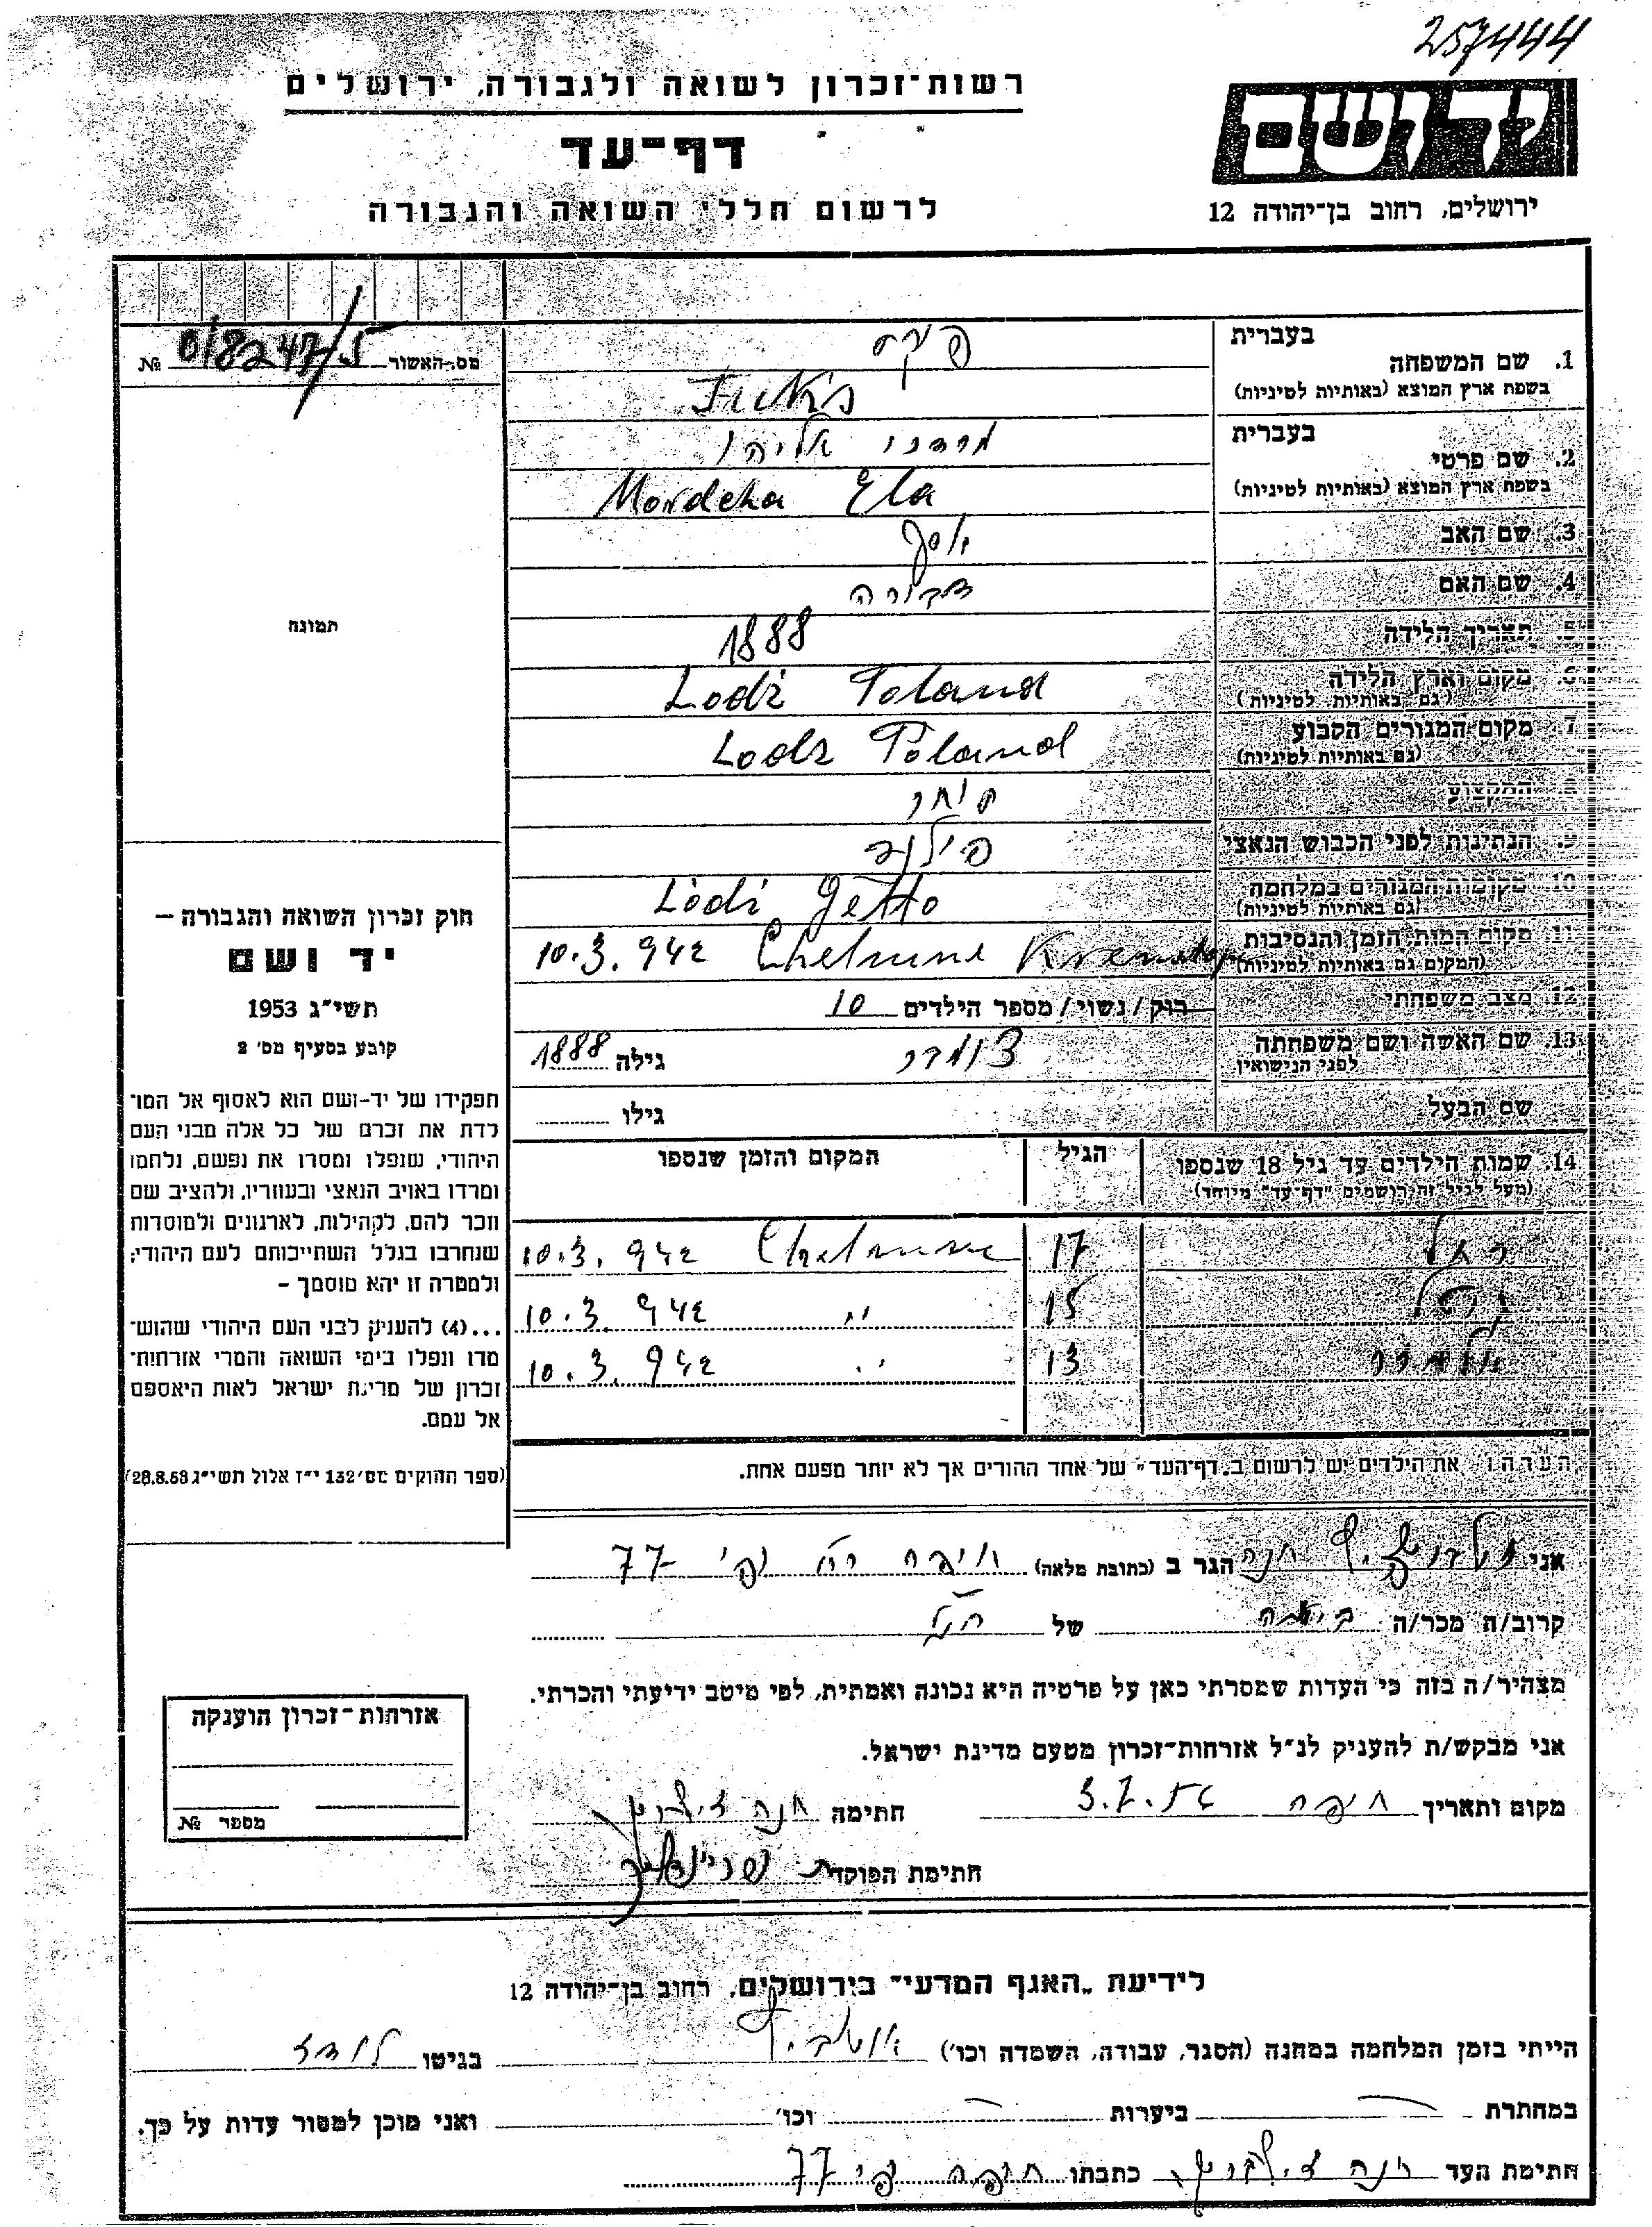 257444
רשות־זכרון לשואה ולגבורה, ירושלים
יד ושם
דף־עד
ירושלים, רחוב בן־יהודה 12
לרשום חללי השואה והגבורה
מס.האשור № 018247/5
בעברית
1. שם המשפחה
בשפת ארץ המוצא (באותיות לטיניות) Fuks
בעברית מרדכי אליהו
2. שם פרטי
בשפת ארץ המוצא (באותיות לטיניות) Mordcha Ela
3. שם האב יוסף
4. שם האם דבורה
5. תאריך הלידה 1888
6. מקום וארץ הלידה Lodź Poland
(גם באותיות לטיניות)
7. מקום המגורים הקבוע Lodz Poland
(גם באותיות לטיניות)
8. המקצוע סוחר
9. הנתינות לפני הכבוש הנאצי
10. מקומות המגורים במלחמה Lòdź Getto
(גם באותיות לטיניות)
11. מקום המות, הזמן והנסיבות 10.3.942
(המקום גם באותיות לטיניות)
12. מצב משפחתי רוק/נשוי/מספר הילדים 10
13. שם האשה ושם משפחתה גילה 1888
לפני הנישואין
שם הבעל גילו
תמונה
חוק זכרון השואה והגבורה –
יד ושם
תשי״ג 1953
קובע בסעיף מס׳ 2
תפקידו של יד-ושם הוא לאסוף אל המו־
לדת את זכרם של כל אלה מבני העם
היהודי, שנפלו ומסרו את נפשם, נלחמו
ומרדו באויב הנאצי ובעוזריו, ולהציב שם
וזכר להם, לקהילות, לארגונים ולמוסדות
שנחרבו בגלל השתייכותם לעם היהודי;
ולמטרה זו יהא מוסמך –
...(4) להעניק לבני העם היהודי שהוש־
מדו ונפלו בימי השואה והמרי אזרחות־
זכרון של מדינת ישראל לאות היאספם
אל עמם.
(ספר החוקים מס׳ 132 י״ז אלול תשי״ג 28.8.53)
14. שמות הילדים עד גיל 18 שנספו הגיל המקום והזמן שנספו
(מעל לגיל זה רושמים "דף-עד" מיוחד)
רחל 17 10.3.942
15 10.3.942 ״
13 10.3.942 ״
הערה: את הילדים יש לרשום ב"דף־העד" של אחד ההורים אך לא יותר מפעם אחת.
אני חנה הגר ב (כתובת מלאה) חיפה 77
קרוב/ה מכר/ה של הנ״ל
מצהיר/ה בזה כי העדות שמסרתי כאן על פרטיה היא נכונה ואמתית, לפי מיטב ידיעתי והכרתי.
אני מבקש/ת להעניק לנ״ל אזרחות־זכרון מטעם מדינת ישראל.
מקום ותאריך חיפה חתימה חנה
חתימת הפוקד
אזרחות־זכרון הוענקה
מספר №
לידיעת "האגף המדעי" בירושלים, רחוב בן־יהודה 12
הייתי בזמן המלחמה במחנה (הסגר, עבודה, השמדה וכו׳) בגיטו לודז
במחתרת ביערות וכו׳ ואני מוכן למסור עדות על כך.
חתימת העד חנה כתבתו חיפה 77